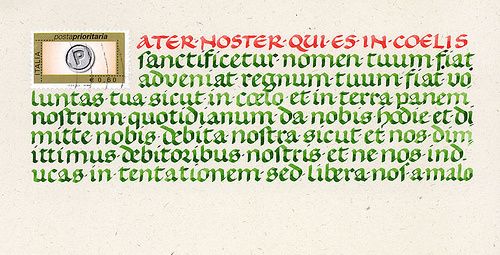 postaprioritaria
P
ITALIA
€ 0,60
ATER·NOSTER·QUI·ES·IN·COELIS
sanctificetur nomen tuum fiat
adveniat regnum tuum fiat vo
luntas tua sicut in cœlo et in terra panem
nostrum quotidianum da nobis hodie et di
mitte nobis debita nostra sicut et nos dim
ittimus debitoribus nostris et ne nos ind.
ucas in tentationem sed libera nos a malo